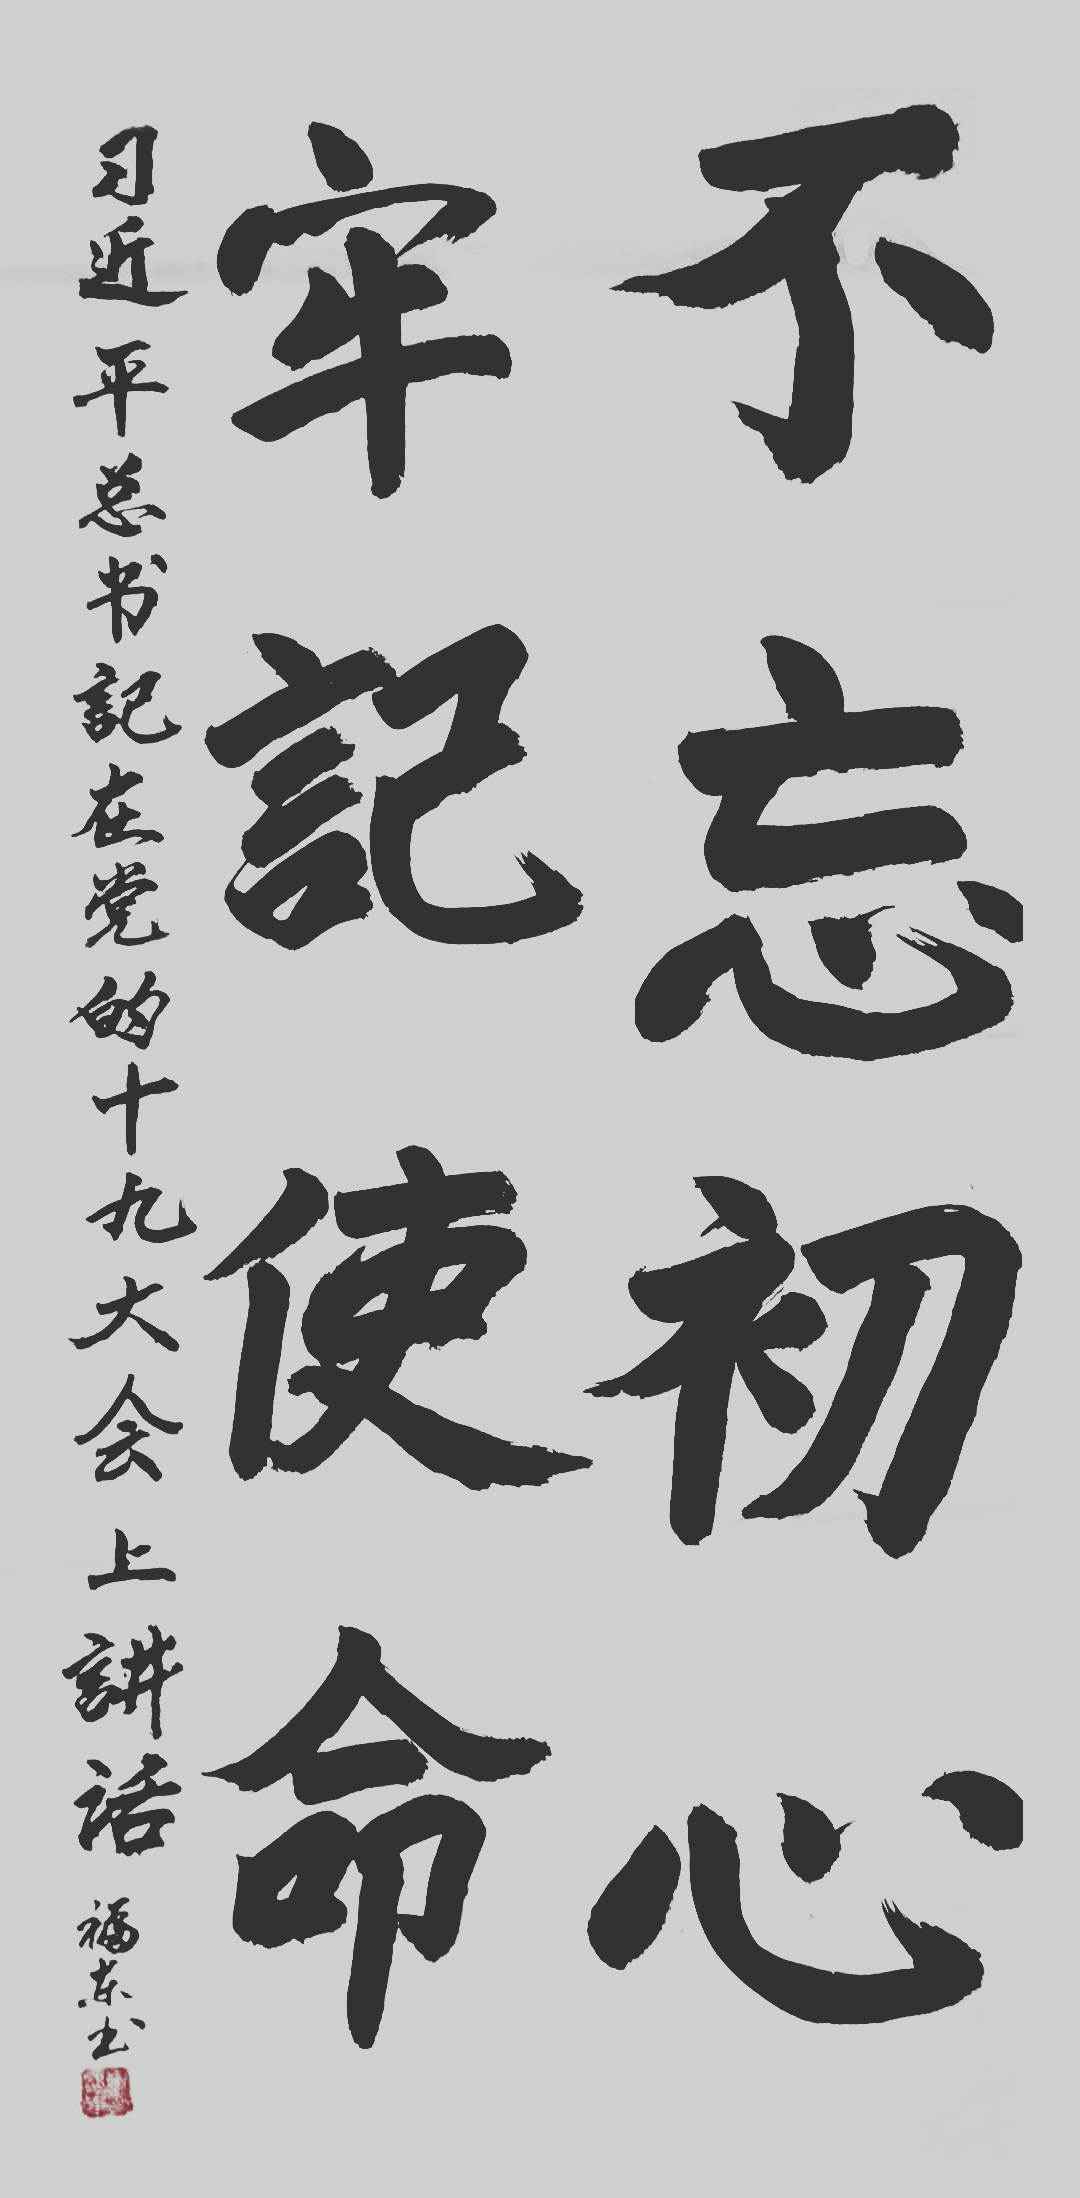 不忘初心
牢記使命
习近平总书記在党的十九大会上講话
福东书